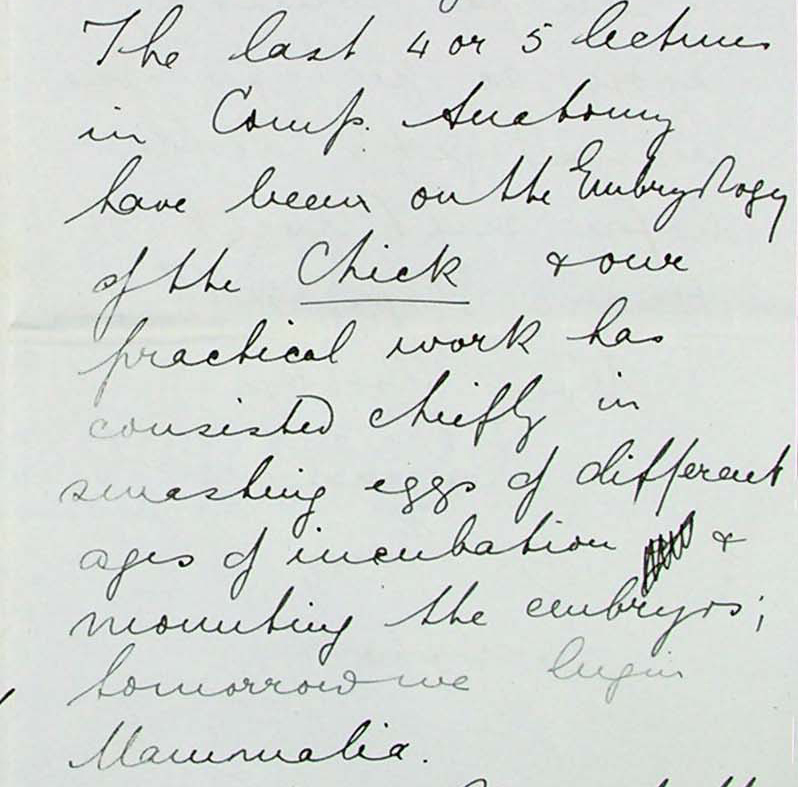 The last 4 or 5 lectures
in Comp. Anatomy
have been on the Embryology
of the Chick & our
practical work has
consisted chiefly in
smashing eggs of different
ages of incubation &
mounting the embryos;
tomorrow we begin
Mammalia.